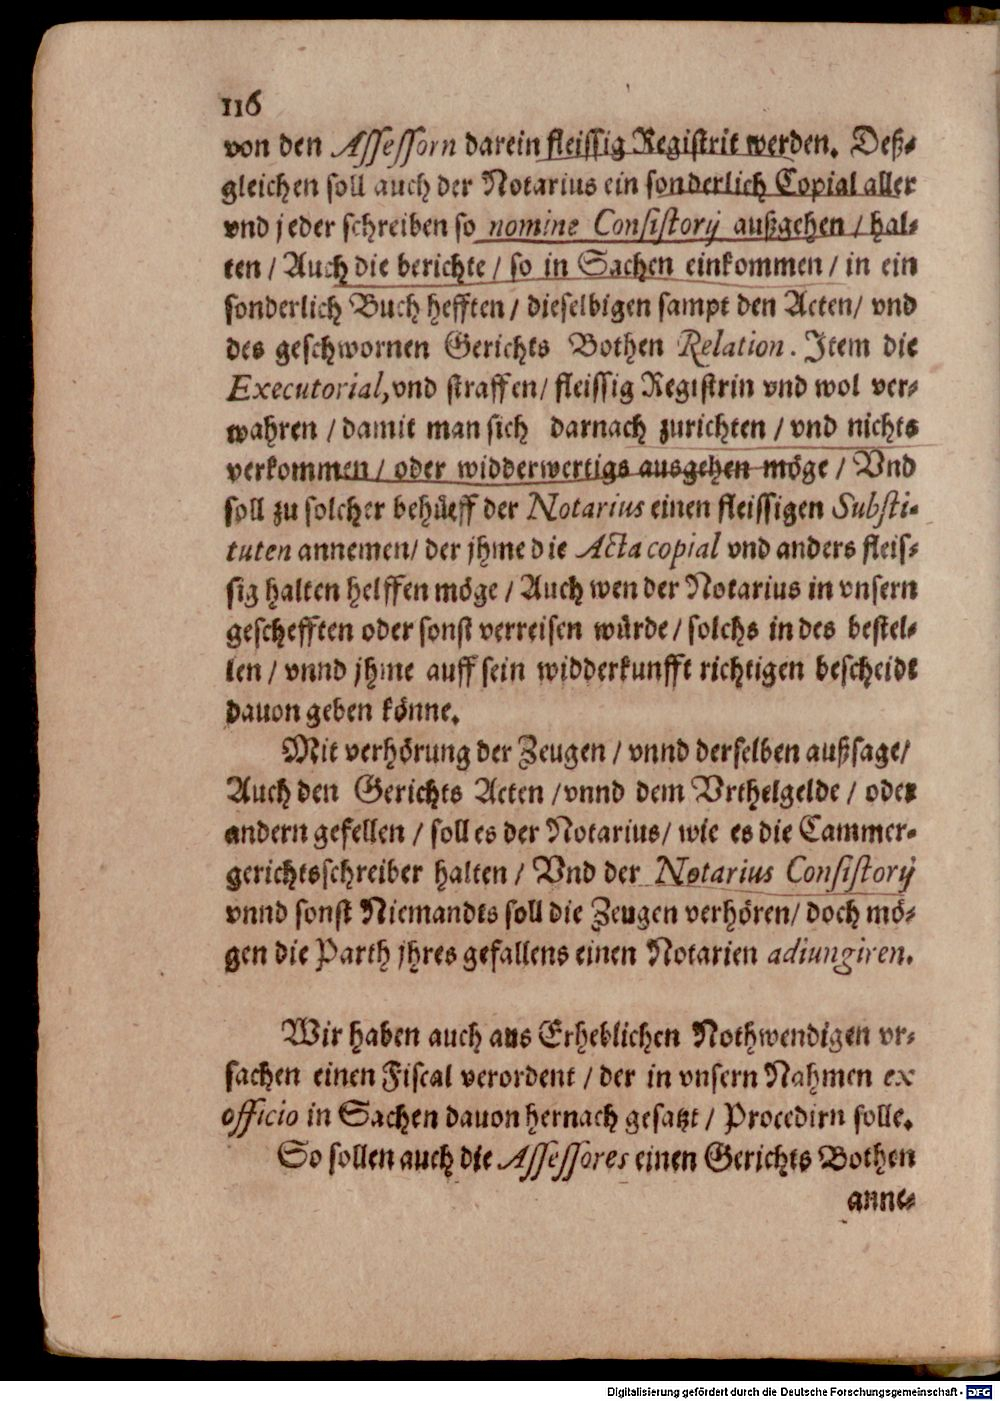 116
von den Assessorn darein fleissig Registrit werden. Deß-
gleichen soll auch der Notarius ein sonderlich Copial aller
vnd jeder schreiben so nomine Consistorij außgehen / hal-
ten / Auch die berichte / so in Sachen einkommen / in ein
sonderlich Buch hefften / dieselbigen sampt den Acten / vnd
des geschwornen Gerichts Bothen Relation. Item die
Executorial, vnd straffen / fleissig Registrin vnd wol ver-
wahren / damit man sich darnach zurichten / vnd nichts
verkommen / oder widderwertigs ausgehen möge / Vnd
soll zu solcher behüeff der Notarius einen fleissigen Substi-
tuten annemen / der jhme die Acta copial vnd anders fleis-
sig halten helffen möge / Auch wen der Notarius in vnsern
geschefften oder sonst verreisen würde / solchs in des bestel-
len / vnnd jhme auff sein widderkunfft richtigen bescheidt
dauon geben könne.
Mit verhörung der Zeugen / vnnd derselben außsage /
Auch den Gerichts Acten / vnnd dem Vrthelgelde / oder
andern gefellen / soll es der Notarius / wie es die Cammer-
gerichtsschreiber halten / Vnd der Notarius Consistorij
vnnd sonst Niemandts soll die Zeugen verhören / doch mö-
gen die Parth jhres gefallens einen Notarien adiungiren.
Wir haben auch aus Erheblichen Nothwendigen vr-
sachen einen Fiscal verordent / der in vnsern Nahmen ex
officio in Sachen dauon hernach gesatzt / Procedirn solle.
So sollen auch die Assessores einen Gerichts Bothen
anne-
Digitalisierung gefördert durch die Deutsche Forschungsgemeinschaft - DFG